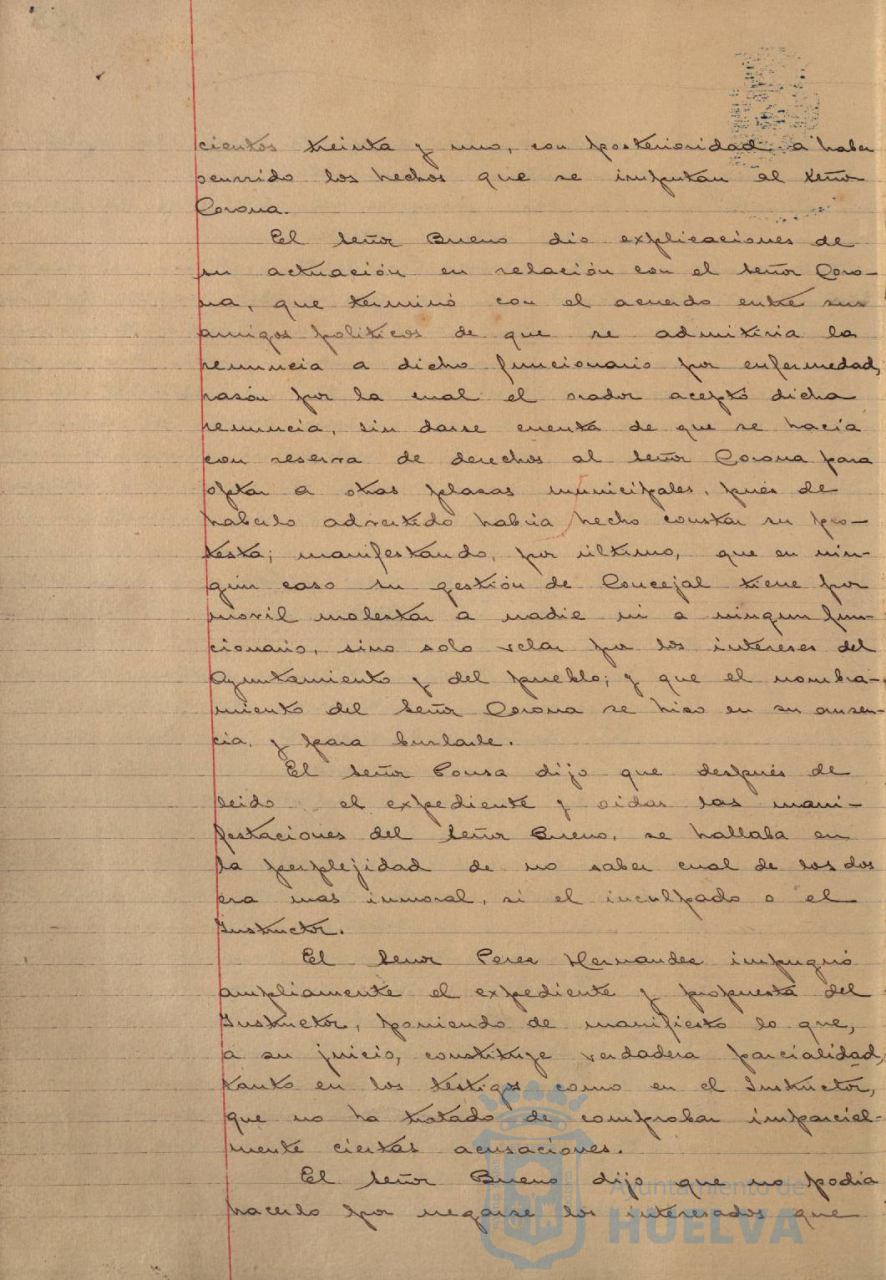 cientos treinta y uno, con posterioridad a haber
ocurrido los hechos que se imputan al Señor
Corona.
El Señor Bueno dio explicaciones de
su actuación en relación con el Señor Coro-
na, que terminó con el acuerdo entre sus
amigos políticos de que se admitiria la
renuncia a dicho funcionario por enfermedad,
rasón por la cual el orador aceptó dicha
renuncia, sin darse cuenta de que se hacía
con reserva de derechos al Señor Corona para
optar a otras plasas municipales, pués de
haberlo advertido habia hecho constar su pro-
testa; manifestando, por último, que en nin-
gún caso su gestión de Concejal tiene por
movil molestar a nadie ni a ningun fun-
cionario, sino solo velar por los intereses del
Ayuntamiento y del pueblo; y que el nombra-
miento del Señor Corona se hiso en su ausen-
cia, y para burlarle.
El Señor Pousa dijo que después de
leido el expediente y oidas las mani-
festaciones del Señor Bueno, se hallaba en
la perplejidad de no saber cual de los dos
era mas inmoral, si el inculpado o el
Instructor.
El Señor Peres Hernandes impugnó
ampliamente el expediente y propuesta del
Instructor, poniendo de manifiesto lo que,
a su juicio, constituye verdadera parcialidad,
tanto en los testigos como en el Instructor,
que no ha tratado de comprobar imparcial-
mente ciertas acusaciones.
El Señor Bueno dijo que no podia
hacerlo por negarse los interesados que
Ayuntamiento de
HUELVA